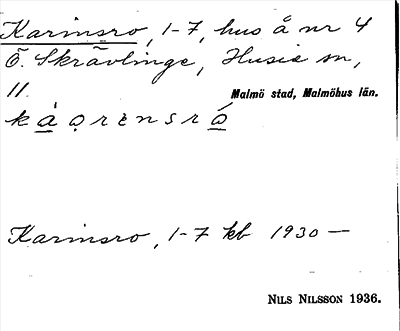 Karinsro, 1-7, hus å nr 4
Ö. Skrävlinge, Husie sn,
11. Malmö stad, Malmöhus län.
Karinsro, 1-7 kb 1930 —
NILS NILSSON 1936.